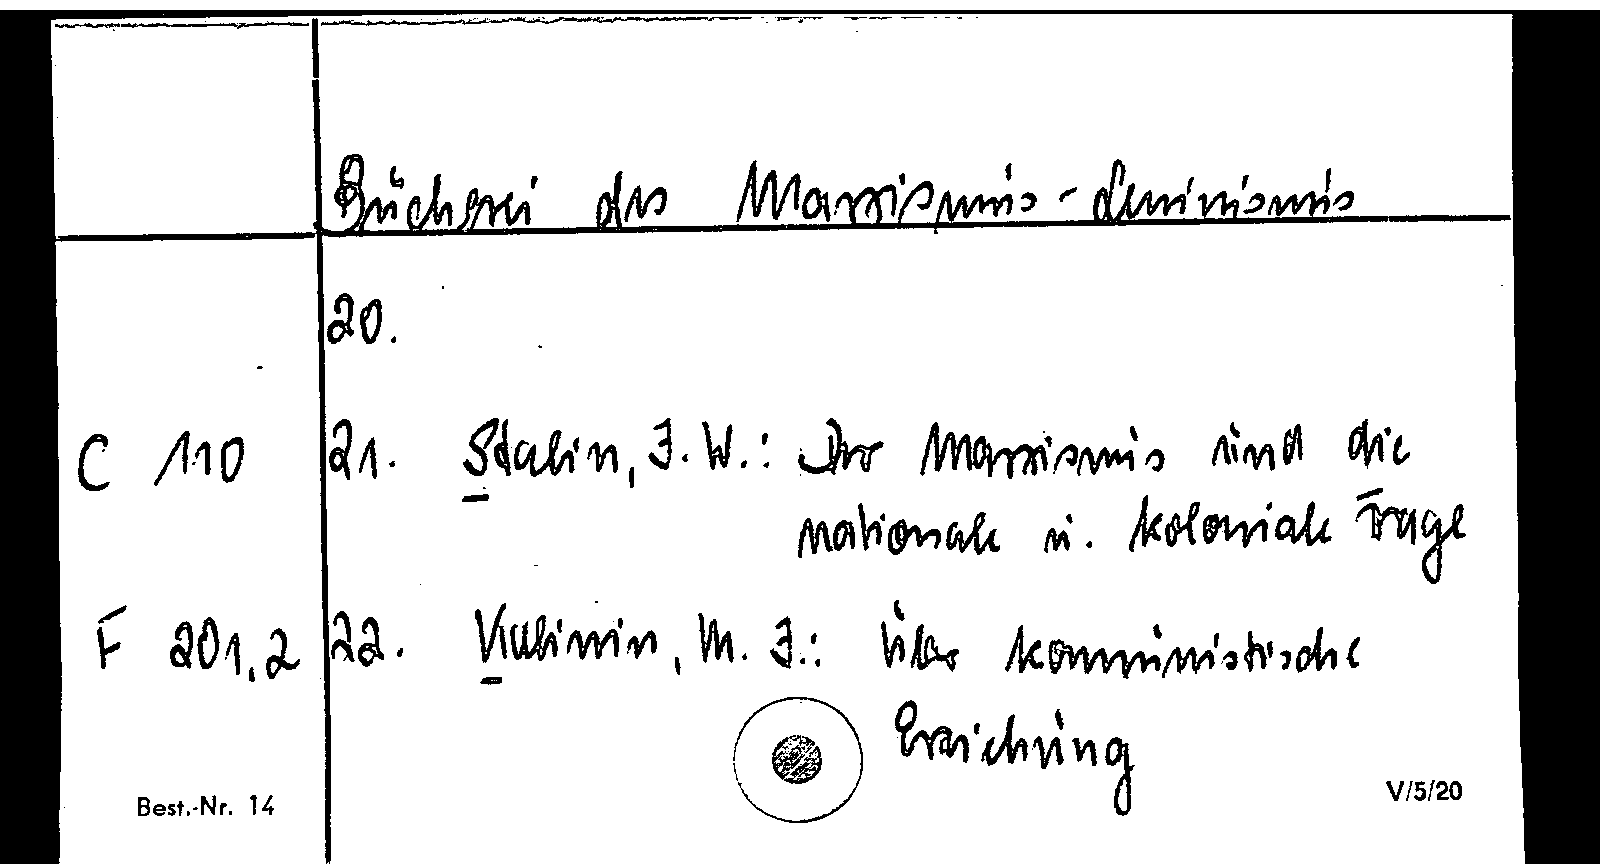 Bücherei des Marxismus-Leninismus
20.
C 110 21. Stalin, J. W.: Der Marxismus und die
nationale u. koloniale Frage
F 201,2 22. Kalinin, M. J.: Über kommunistische
Erziehung
Best.-Nr. 14 V/5/20